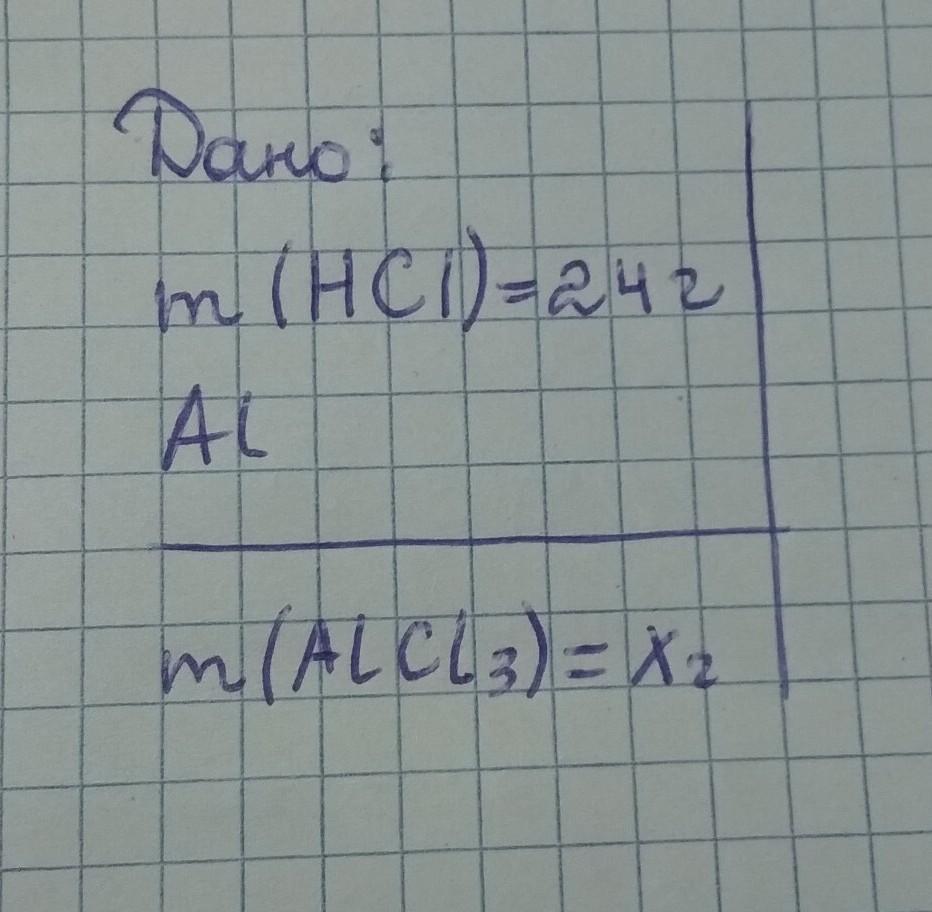 Дано:
m (HCl)=24г
Al
m(AlCl₃)= Xг